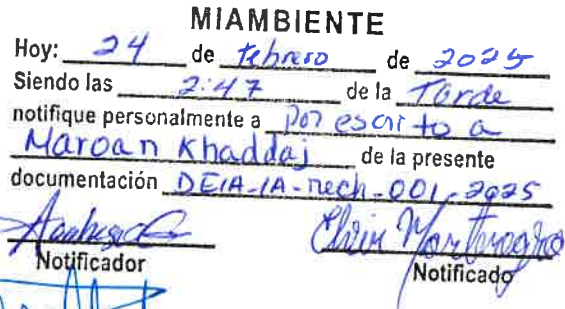 MIAMBIENTE
Hoy: 24 de febrero de 2025
Siendo las 2:47 de la Tarde
notifique personalmente a por escrito a
Maroan Khaddaj de la presente
documentación DEIA-IA-rech-001-2025
Notificador Notificado